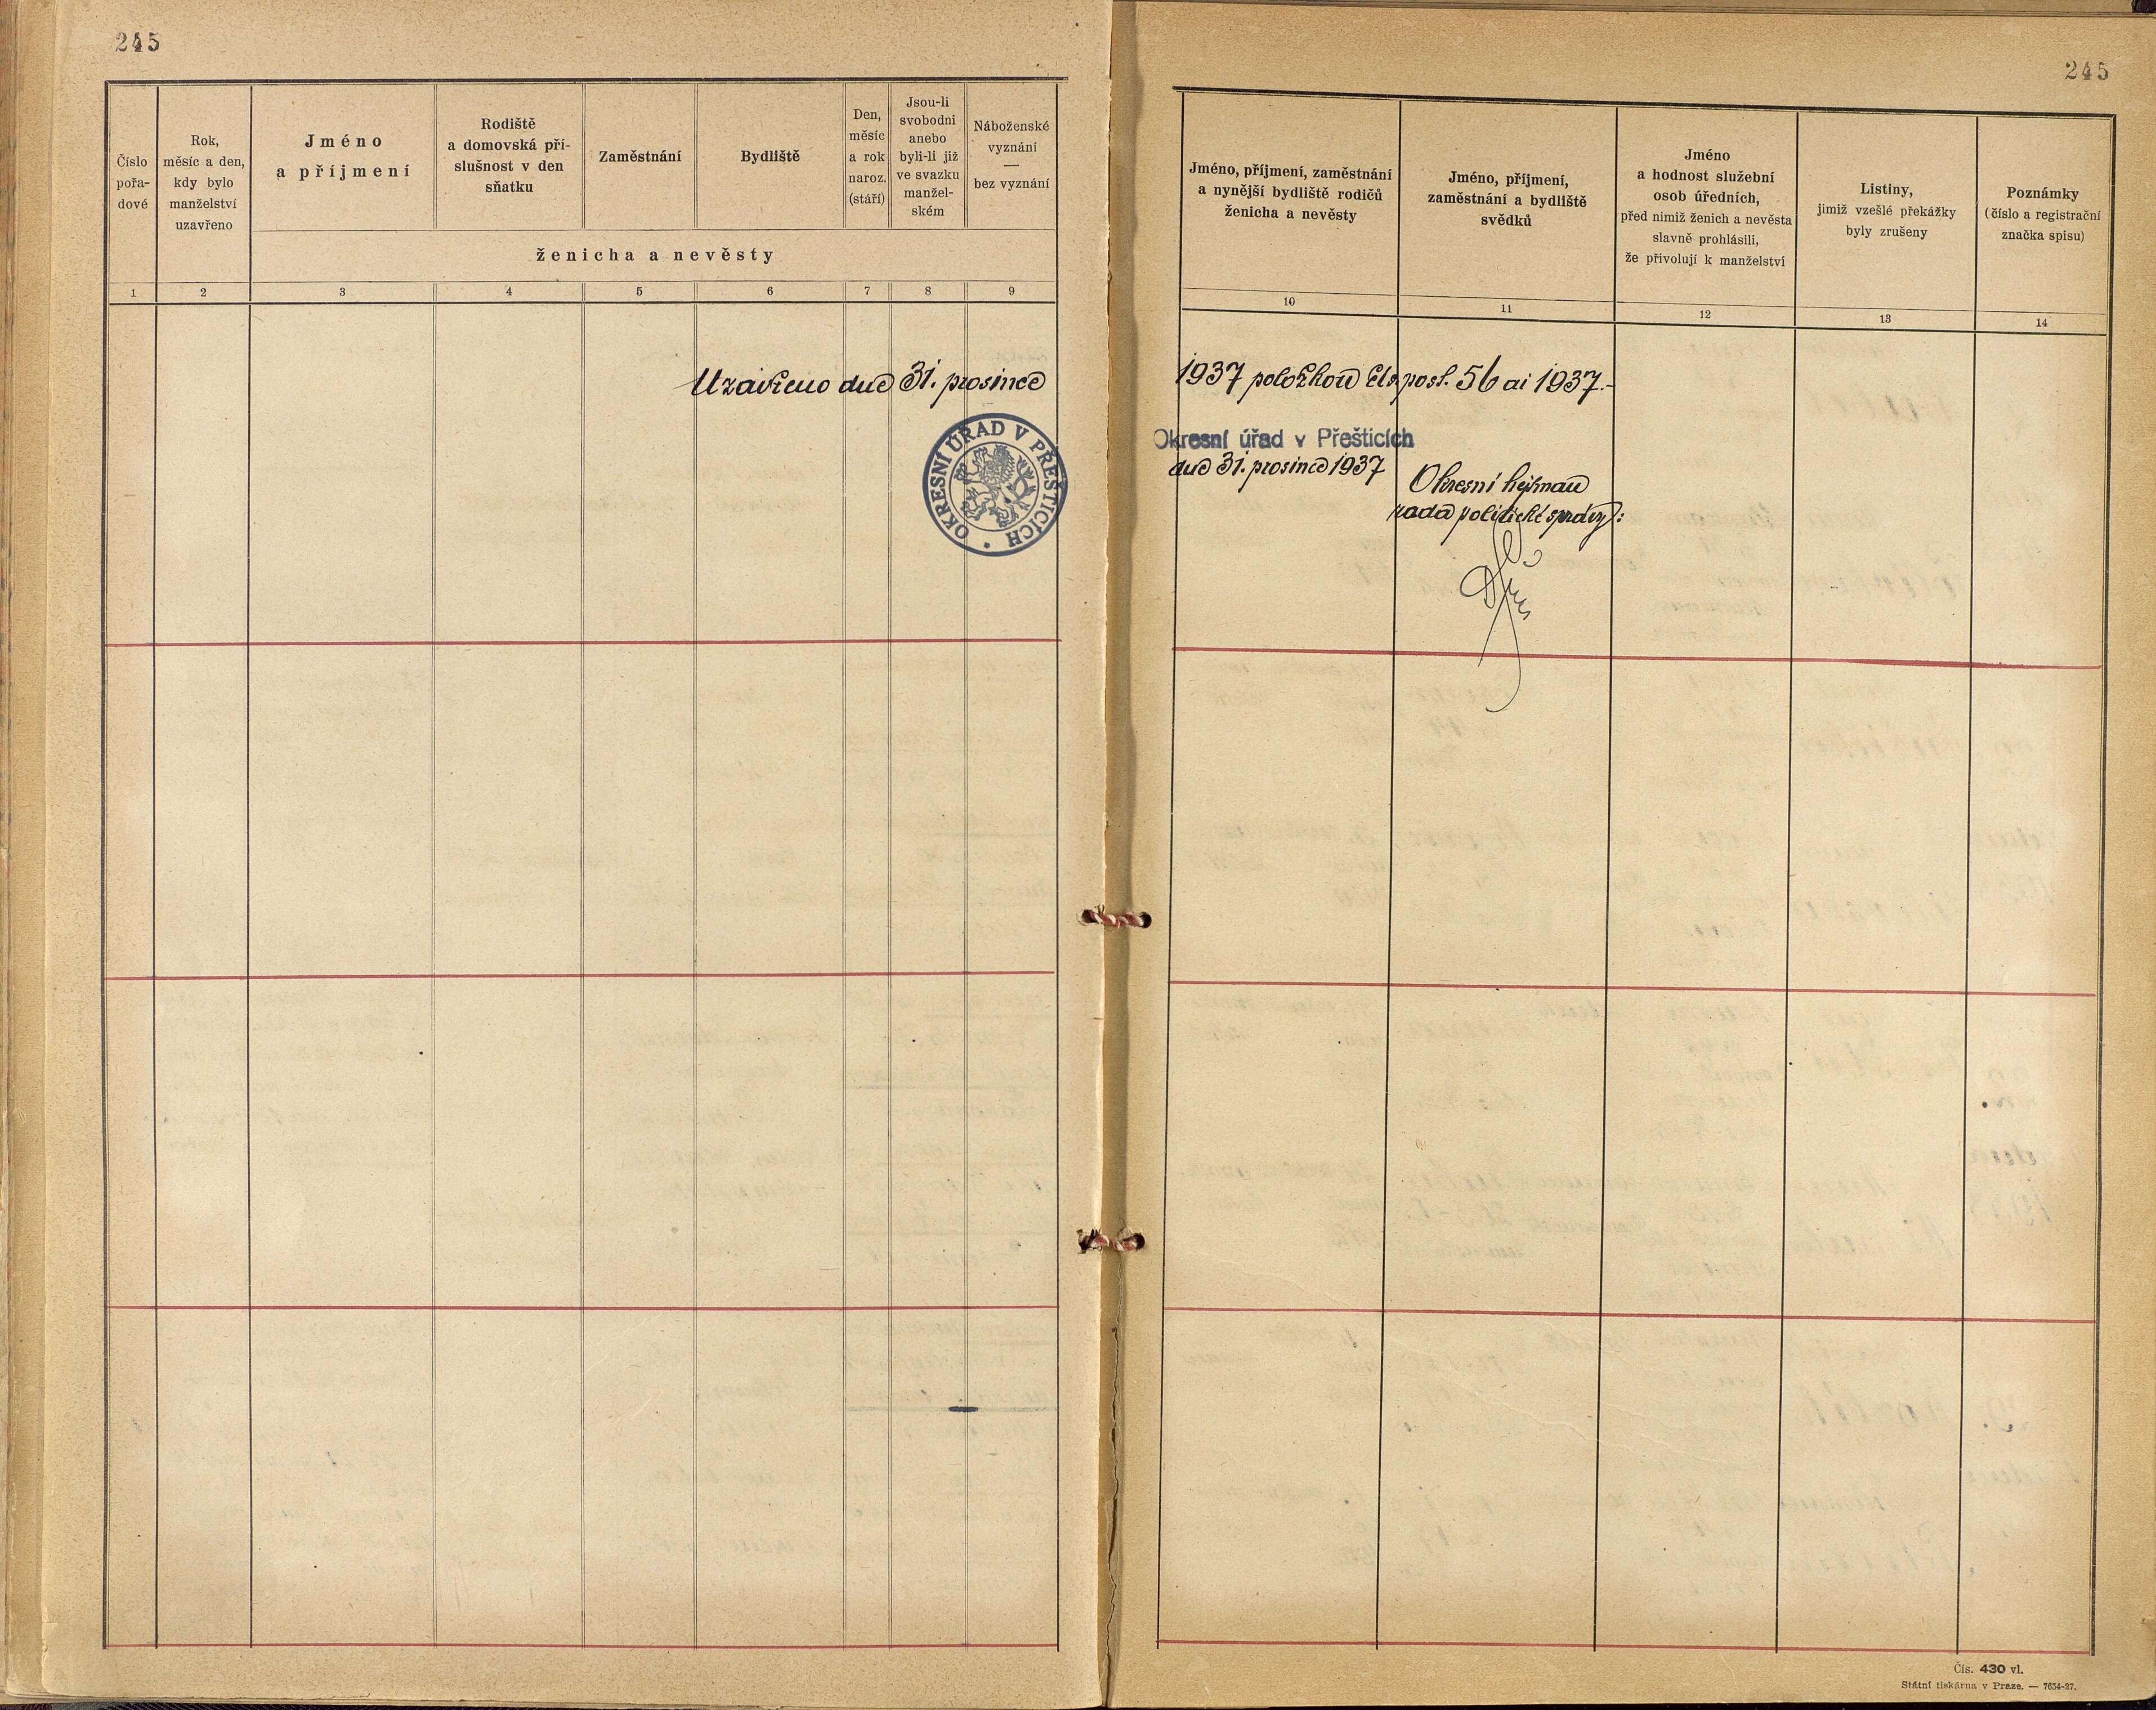 245
Číslo
pořa-
dové
Rok,
měsíc a den,
kdy bylo
manželství
uzavřeno
Jméno
a příjmení
Rodiště
a domovská pří-
slušnost v den
sňatku
Zaměstnání
Bydliště
Den,
měsíc
a rok
naroz.
(stáří)
Jsou-li
svobodni
anebo
byli-li již
ve svazku
manžel-
ském
Náboženské
vyznání
—
bez vyznání
ženicha a nevěsty
1 2 3 4 5 6 7 8 9
Uzavřeno dne 31. prosince
OKRESNÍ ÚŘAD V PŘEŠTICÍCH
245
Jméno, příjmení, zaměstnání
a nynější bydliště rodičů
ženicha a nevěsty
Jméno, příjmení,
zaměstnání a bydliště
svědků
Jméno
a hodnost služební
osob úředních,
před nimiž ženich a nevěsta
slavně prohlásili,
že přivolují k manželství
Listiny,
jimiž vzešlé překážky
byly zrušeny
Poznámky
(číslo a registrační
značka spisu)
10 11 12 13 14
1937 položkou čís. posl. 56 ai 1937.-
Okresní úřad v Přešticích
dne 31. prosince 1937
Okresní hejtman
rada politické správy:
Čís. 430 vl.
Státní tiskárna v Praze. — 7654-27.